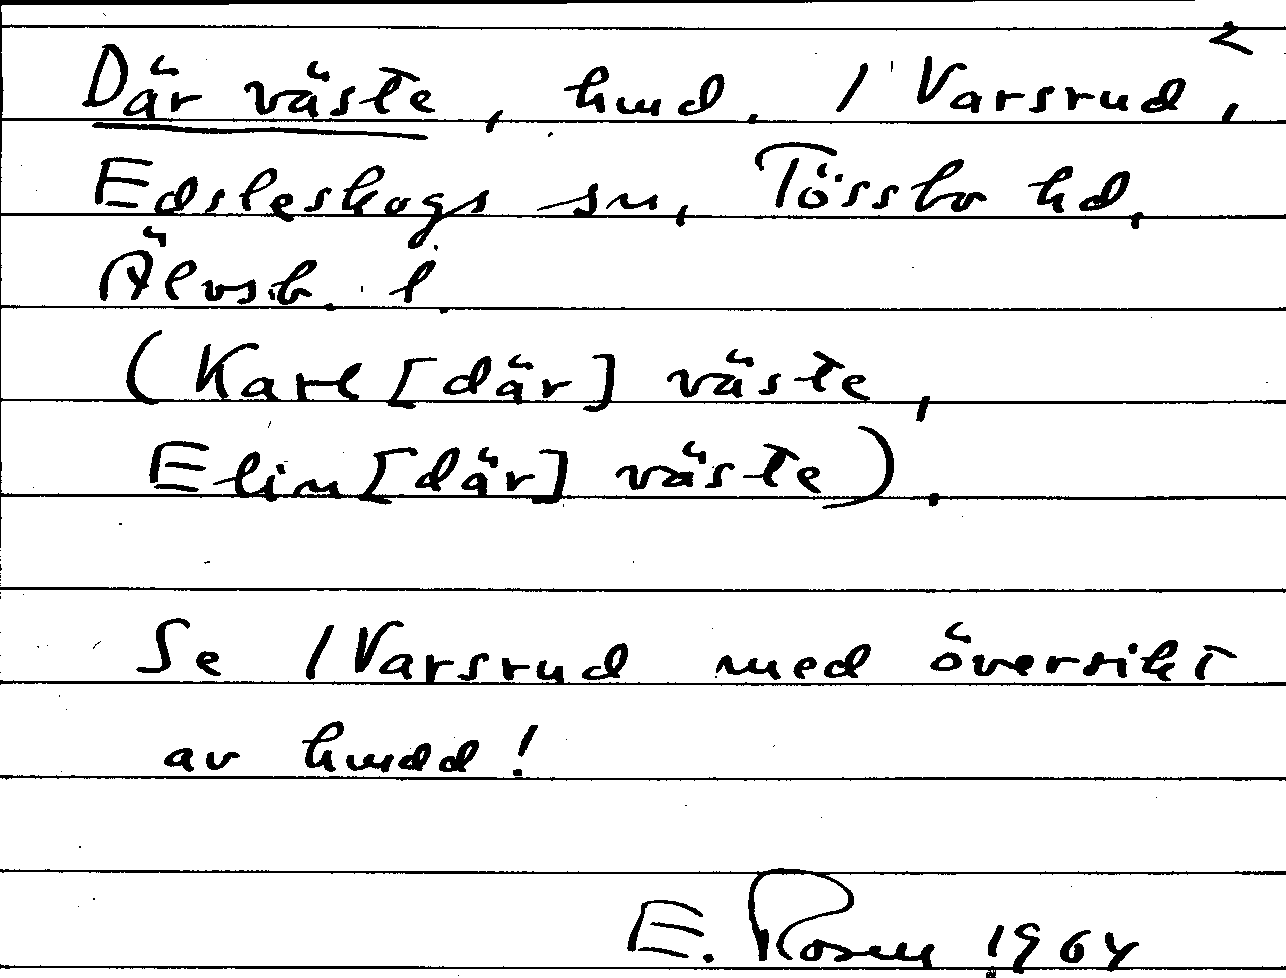 Där väste, hmd. / Varsrud,
Edsleskogs sn, Tössbo hd,
Älvsb. l.
(Karl [där] väste,
Elin [där] väste).
Se / Varsrud med översikt
av hmdd!
E. Rosen 1964